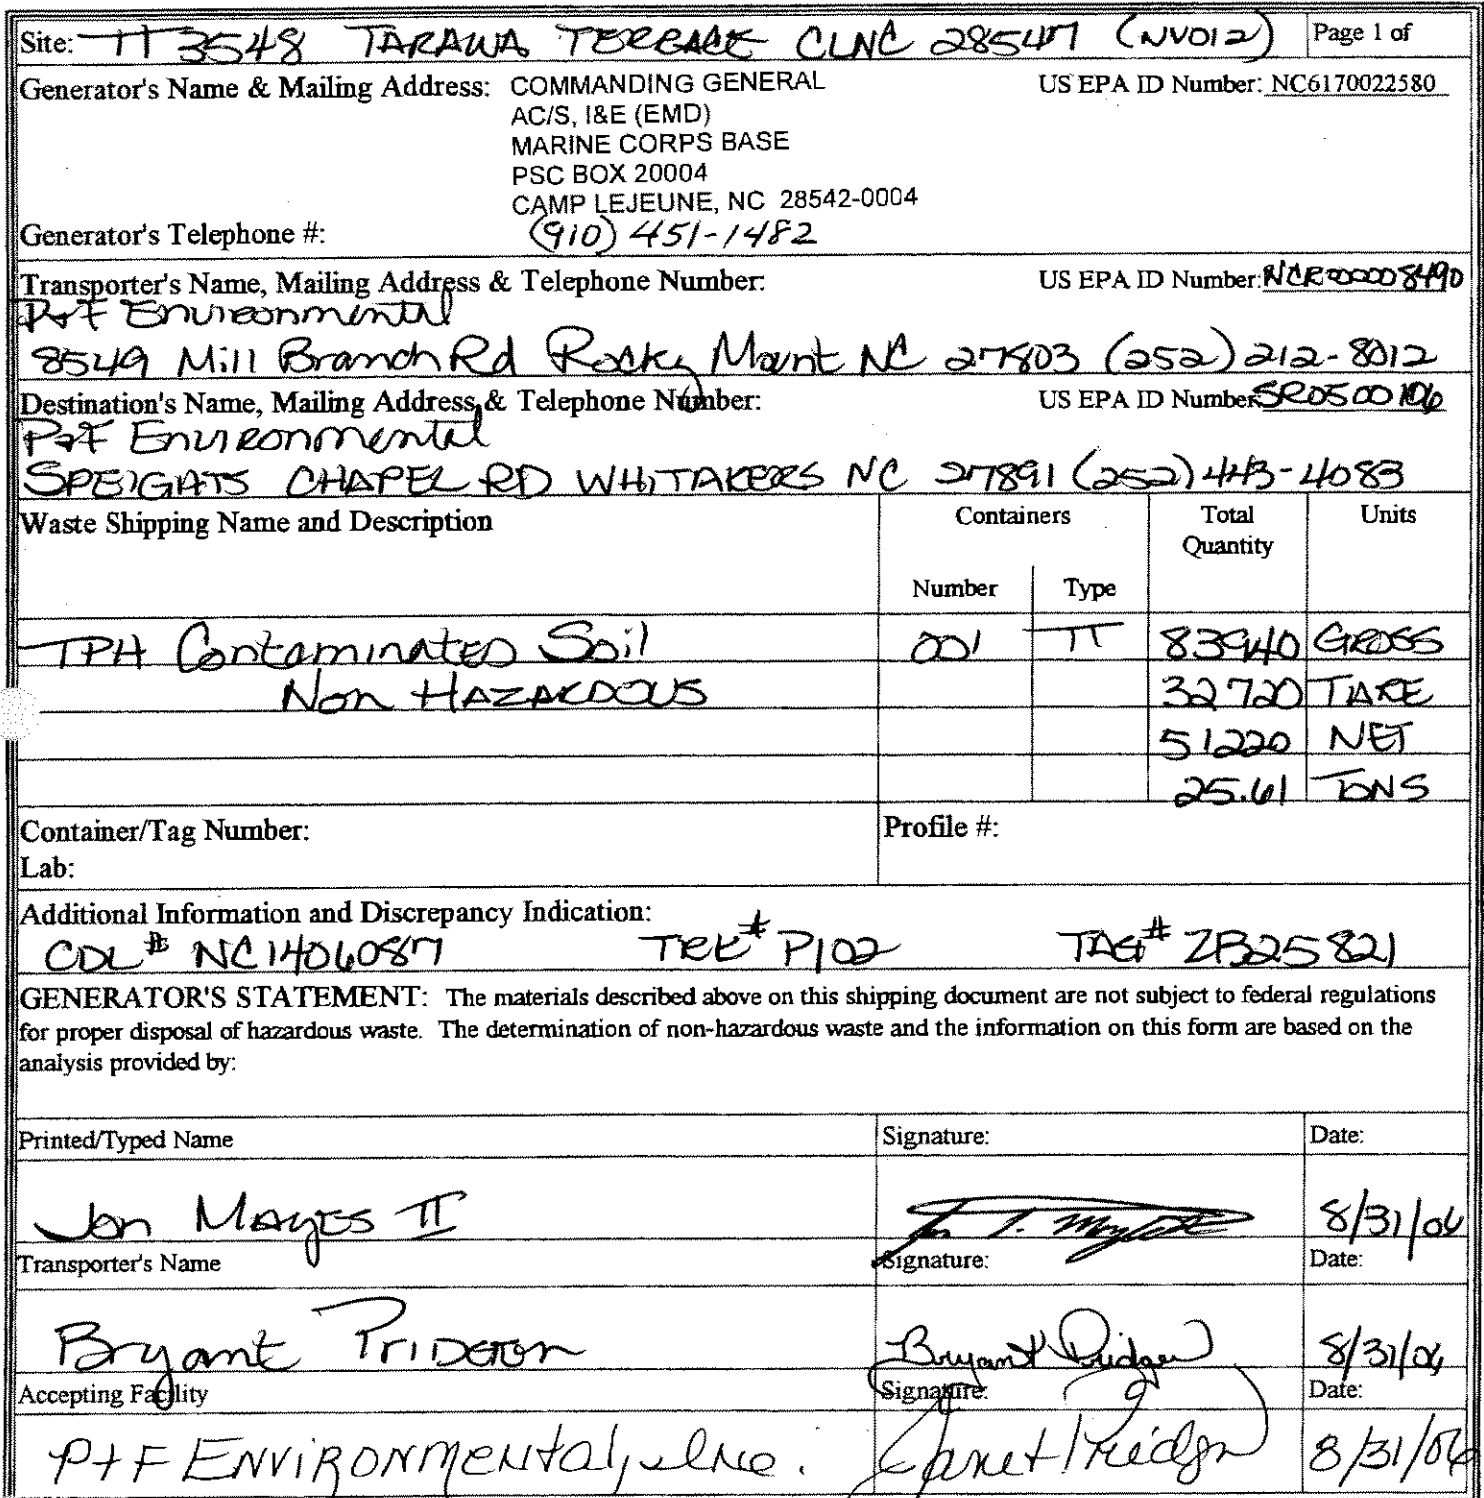 Site: TT3548 TARAWA TERRACE CLNC 28547 (NV012) Page 1 of
Generator's Name & Mailing Address: COMMANDING GENERAL US EPA ID Number: NC6170022580
AC/S, I&E (EMD)
MARINE CORPS BASE
PSC BOX 20004
CAMP LEJEUNE, NC 28542-0004
Generator's Telephone #: (910) 451-1482
Transporter's Name, Mailing Address & Telephone Number: US EPA ID Number: NCR000008490
P+F Environmental
8549 Mill Branch Rd Rocky Mount NC 27803 (252) 212-8012
Destination's Name, Mailing Address & Telephone Number: US EPA ID Number SR0500106
P+F Environmental
SPEIGATS CHAPEL RD WHITAKERS NC 27891 (252) 443-4083
Waste Shipping Name and Description Containers Total Quantity Units
Number Type
TPH Contaminated Soil 001 TT 83940 GROSS
Non HAZARDOUS 32720 TARE
51220 NET
25.61 TONS
Container/Tag Number: Profile #:
Lab:
Additional Information and Discrepancy Indication:
CDL# NC1406087 TRK# P102 TAG# ZB25821
GENERATOR'S STATEMENT: The materials described above on this shipping document are not subject to federal regulations
for proper disposal of hazardous waste. The determination of non-hazardous waste and the information on this form are based on the
analysis provided by:
Printed/Typed Name Signature: Date:
Jon Mayes II 8/31/06
Transporter's Name Signature: Date:
Bryant Pridgen Bryant Pridgen 8/31/06
Accepting Facility Signature: Date:
P+F ENVIRONMENTAL, Inc. Janet Pridgn 8/31/06